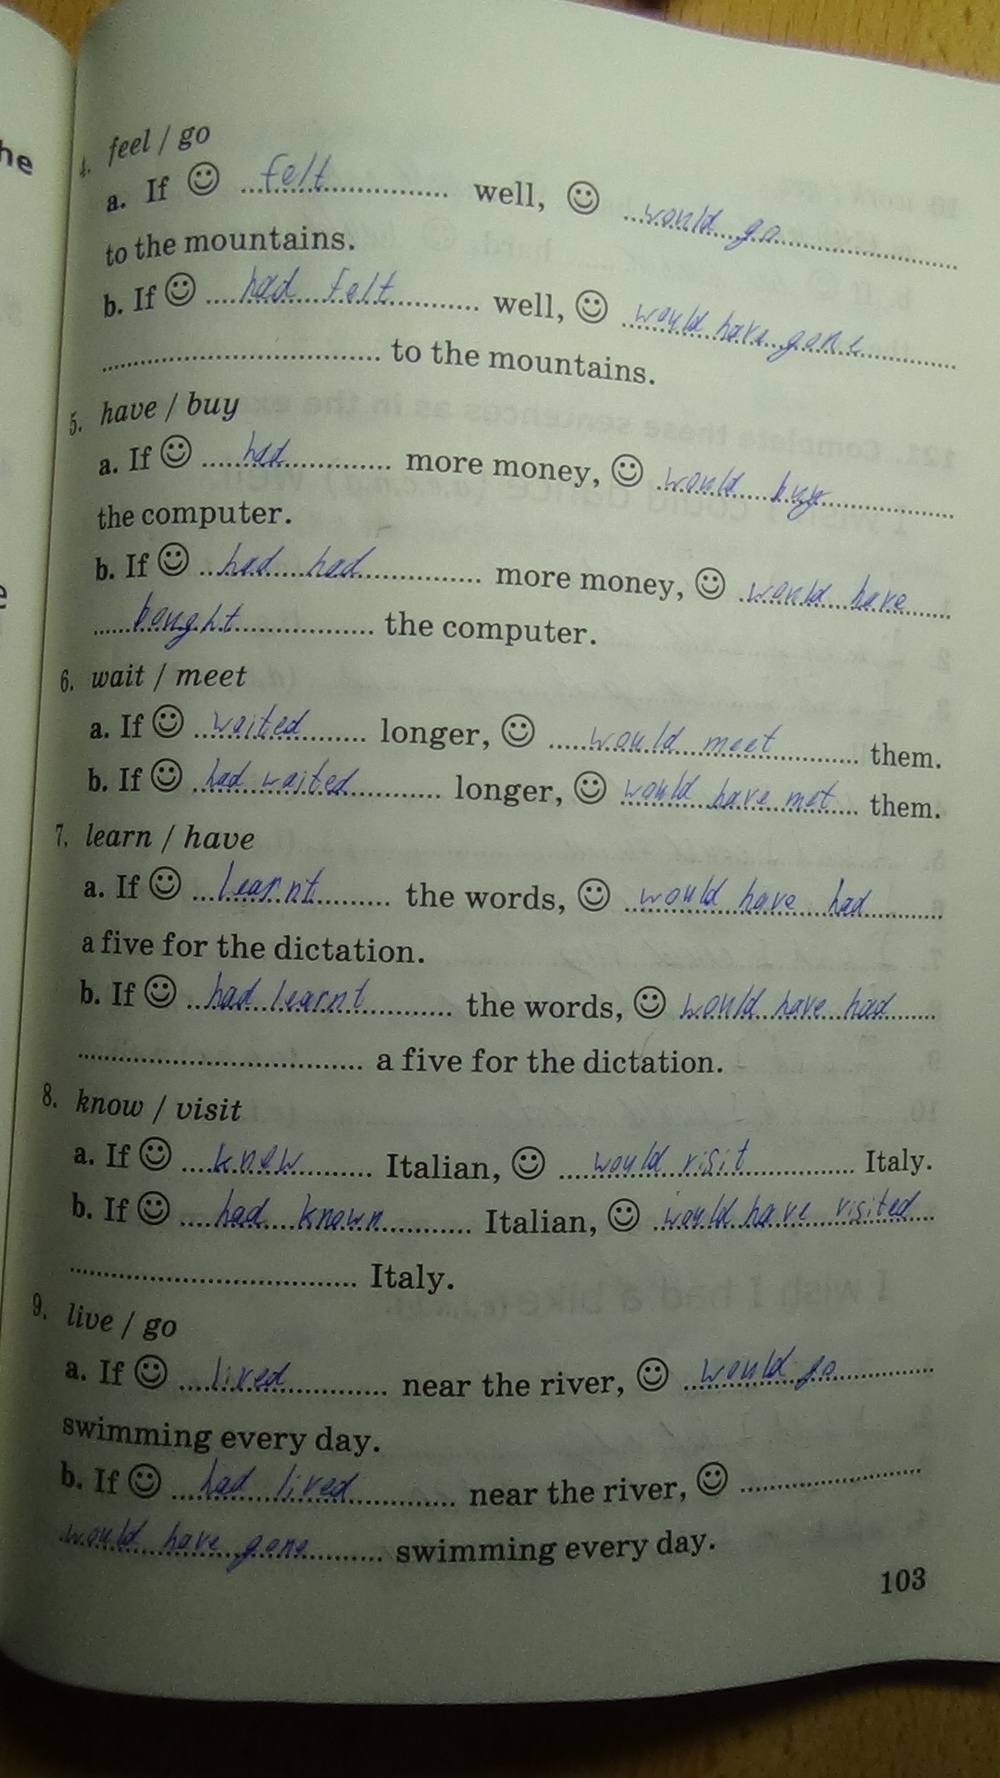 he
4. feel / go
a. If ☺ felt well, ☺ would go
to the mountains.
b. If ☺ had felt well, ☺ would have gone
to the mountains.
5. have / buy
a. If ☺ had more money, ☺ would buy
the computer.
b. If ☺ had had more money, ☺ would have
bought the computer.
6. wait / meet
a. If ☺ waited longer, ☺ would meet them.
b. If ☺ had waited longer, ☺ would have met them.
7. learn / have
a. If ☺ learnt the words, ☺ would have had
a five for the dictation.
b. If ☺ had learnt the words, ☺ would have had
a five for the dictation.
8. know / visit
a. If ☺ knew Italian, ☺ would visit Italy.
b. If ☺ had known Italian, ☺ would have visited
Italy.
9. live / go
a. If ☺ lived near the river, ☺ would go
swimming every day.
b. If ☺ had lived near the river, ☺
would have gone swimming every day.
103